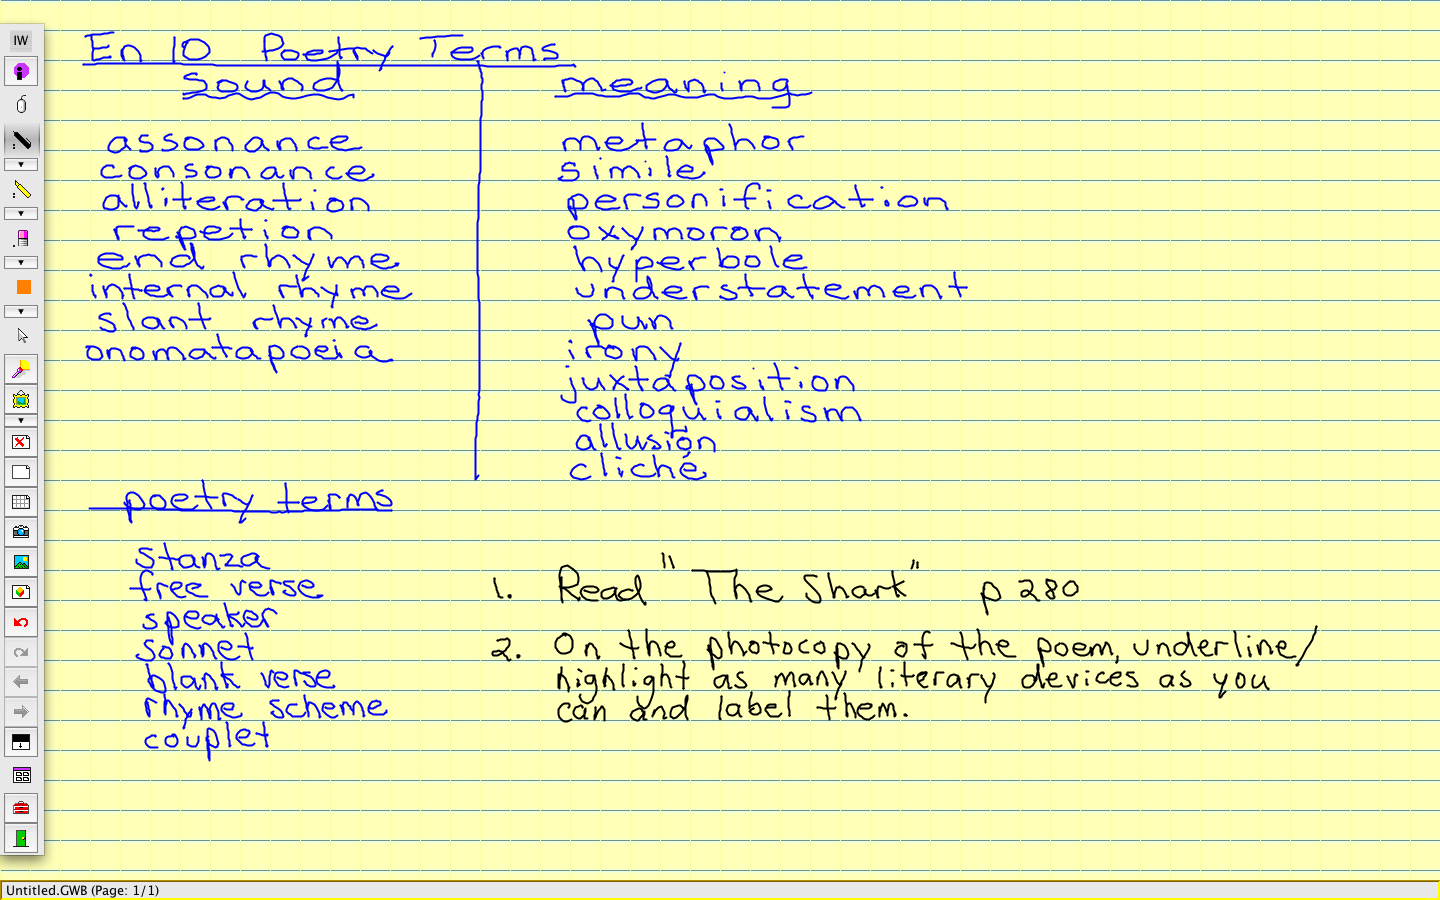 IW
En 10 Poetry Terms
sound
assonance
consonance
alliteration
repetion
end rhyme
internal rhyme
slant rhyme
onomatapoeia
meaning
metaphor
simile
personification
oxymoron
hyperbole
understatement
pun
irony
juxtaposition
colloquialism
allusion
cliché
poetry terms
stanza
free verse
speaker
sonnet
blank verse
rhyme scheme
couplet
1. Read "The Shark" p 280
2. On the photocopy of the poem, underline/
highlight as many literary devices as you
can and label them.
Untitled.GWB (Page: 1/1)